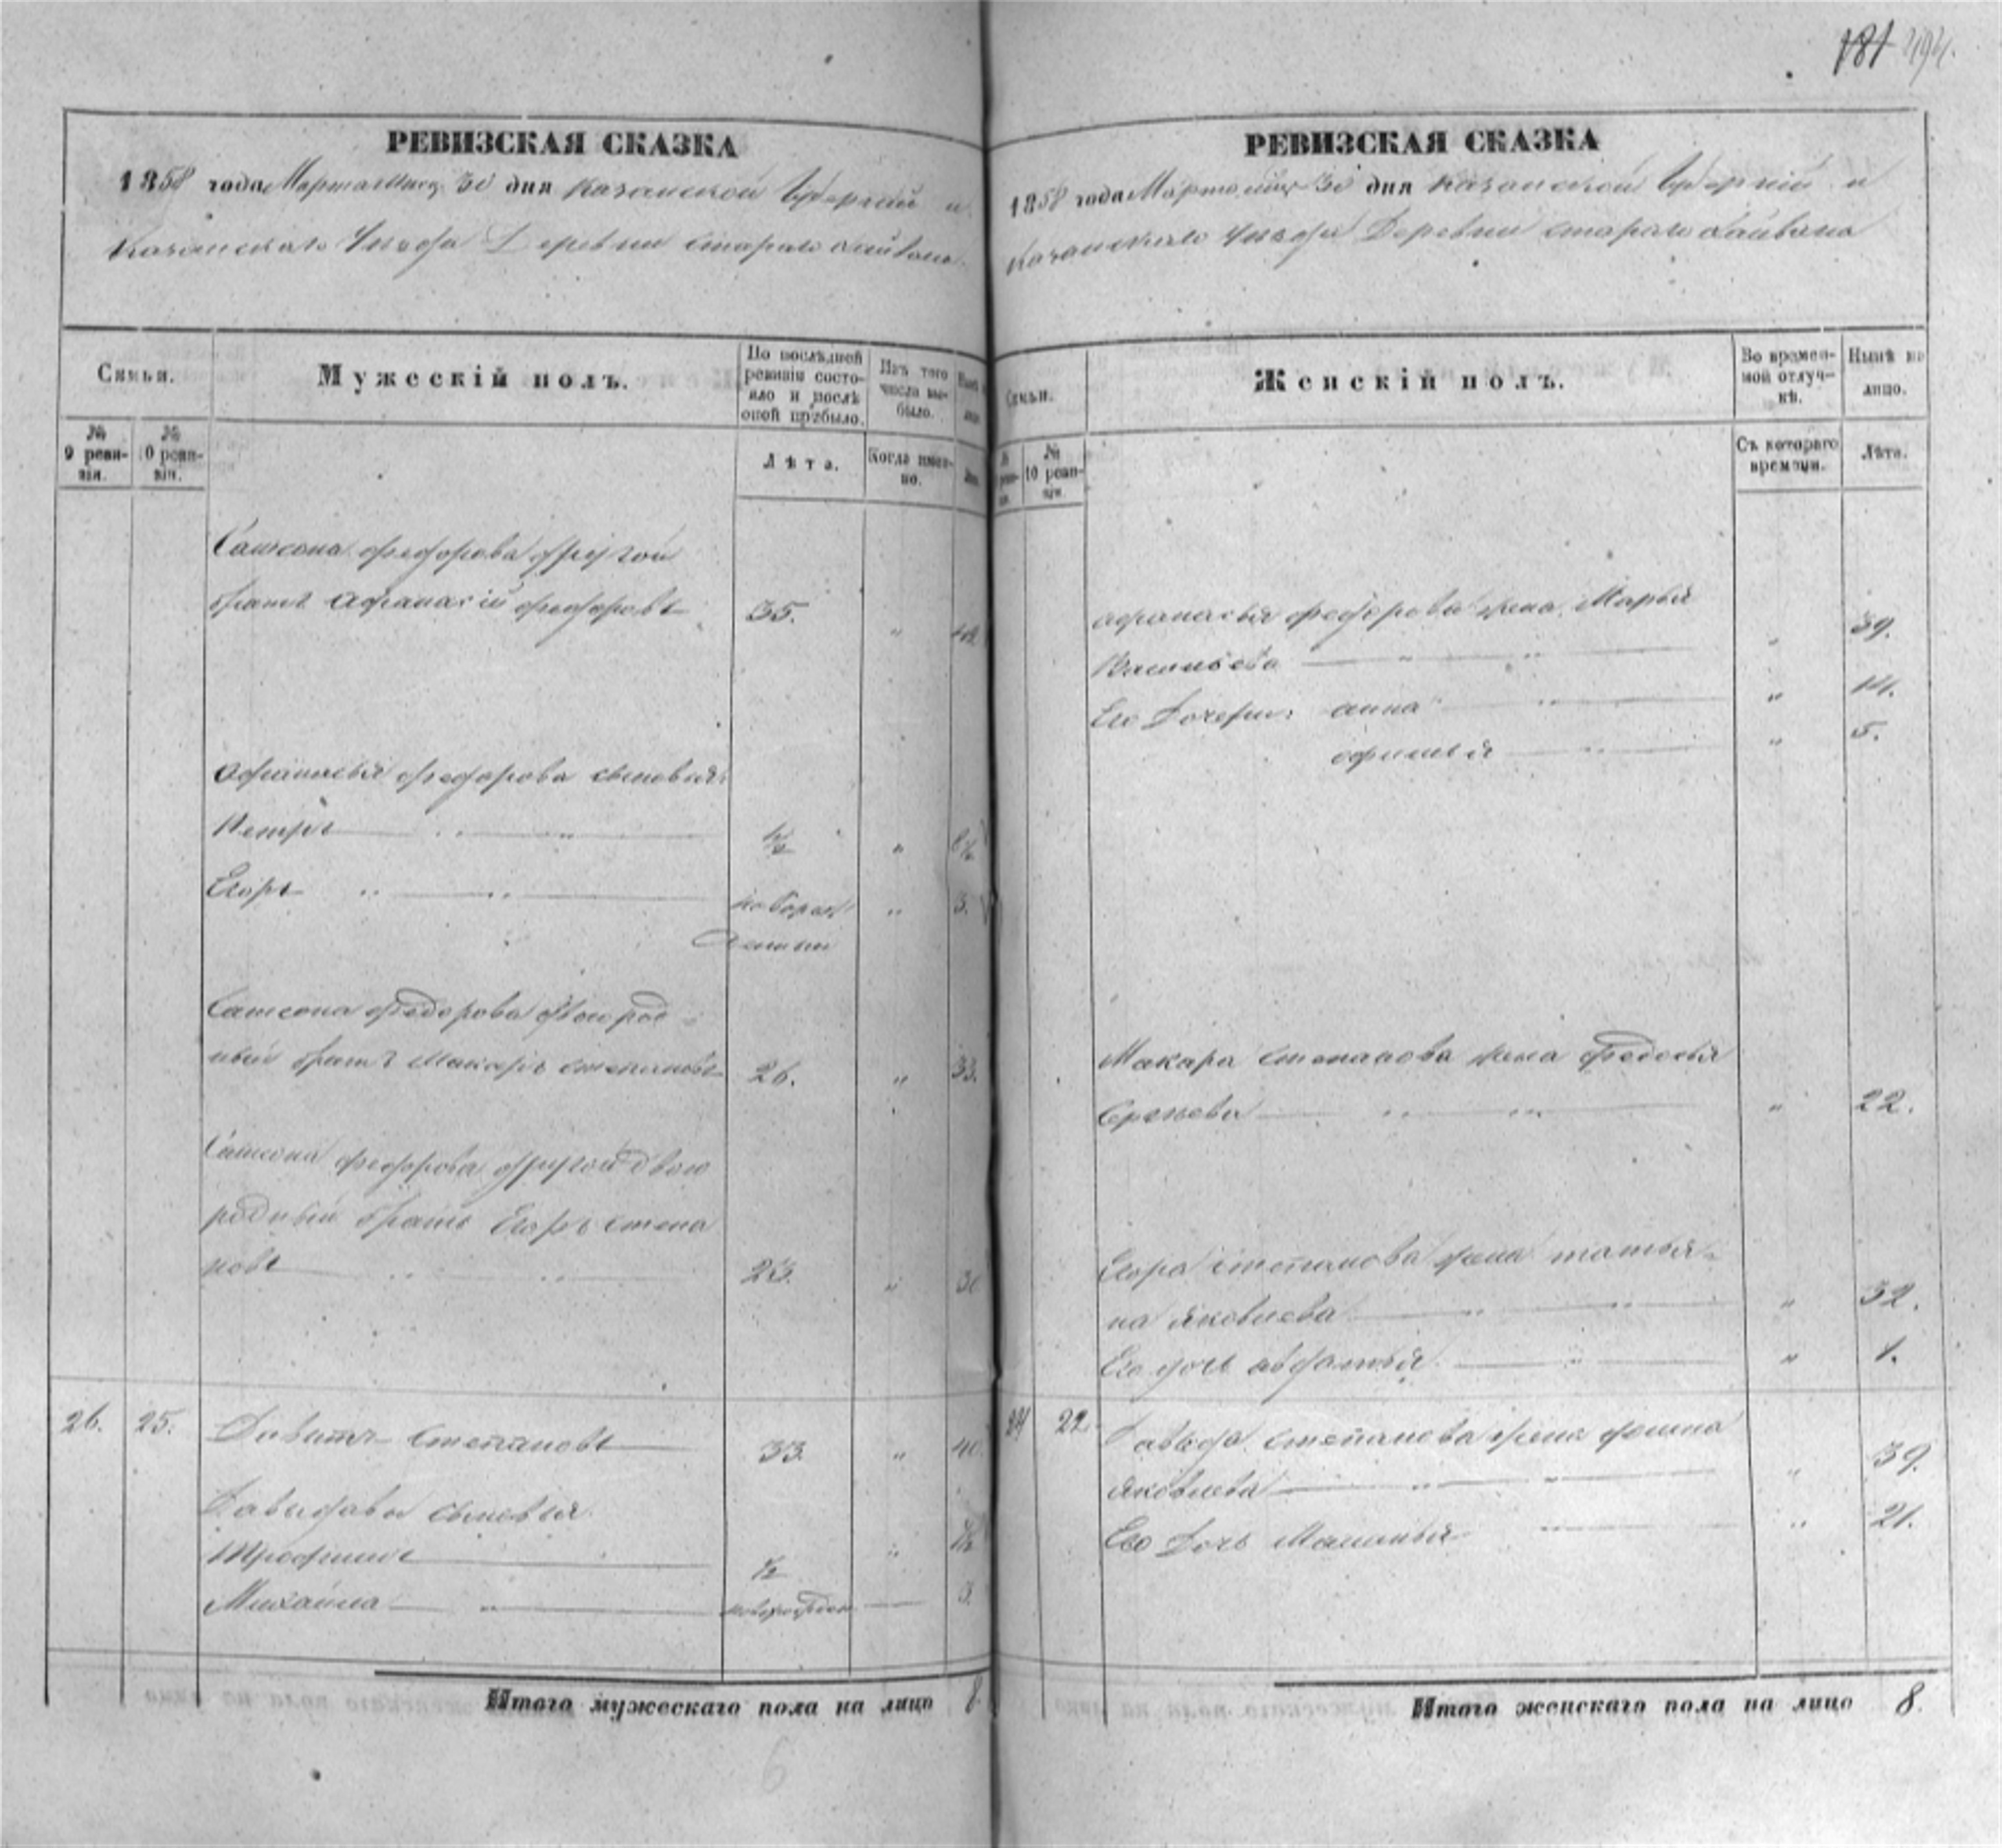 181
РЕВИЗСКАЯ СКАЗКА
1858 года Марта 30 дня Казанской Губерніи и
Казанскаго Уезда Деревни Стараго
Семьи.
Мужескій полъ.
По послѣдней ревизіи состояло и послѣ оной прибыло.
Изъ того числа выбыло.
№ 9 ревизіи.
№ 10 ревизіи.
Лѣта.
Когда именно.
Самсона Федорова другой
братъ Афанасій Федоровъ 35. "
Афанасья Федорова сыновья:
Петръ " "
Егоръ новорож " 3.
денный
Самсона Федорова двоюрод=
ный братъ Макаръ Степановъ 26. " 33.
Самсона Федорова другой двою
родный братъ Егоръ Степа
новъ 23. " 30
26. 25. Давытъ Степановъ 33. " 40.
Давыдовы сыновья
Трофимъ 1/2 "
Михайла новорожден 3.
Итого мужескаго пола на лицо 8.
РЕВИЗСКАЯ СКАЗКА
1858 года Марта 30 дня Казанской Губерніи и
Казанскаго Уезда Деревни Стараго
Семьи.
Женскій полъ.
Во временной отлучкѣ.
Нынѣ на лицо.
№ 10 ревизіи.
Съ котораго времени.
Лѣта.
Афанасья Федорова жена Марья
Васильева " 39.
Его Дочери: Анна " 14.
Афимья " 5.
Макара Степанова жена Федосья
" 22.
Егора Степанова жена Татья=
на Яковлева " 32.
Его дочь Авдотья " 1.
22. Давыда Степанова жена
Яковлева " 39.
Его Дочь " 21.
Итого женскаго пола на лицо 8.